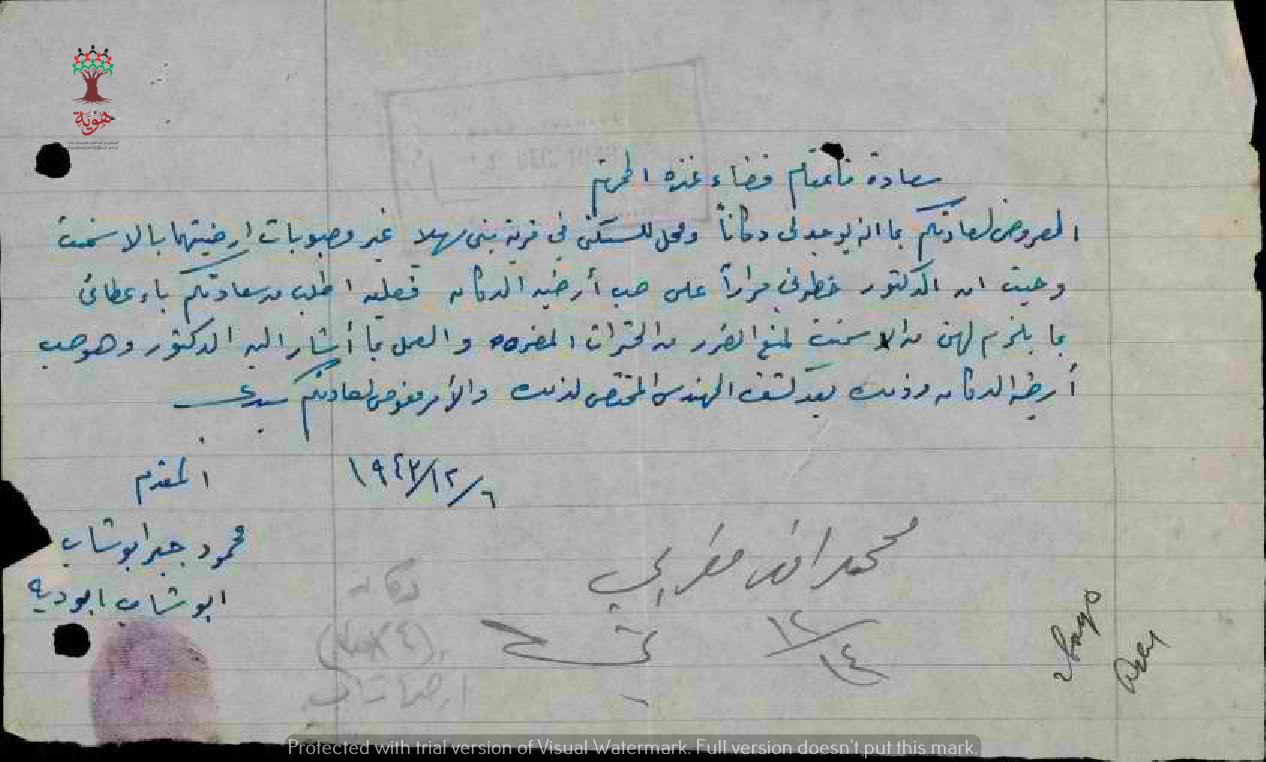 هوية
سعادة قائمقام قضاء غزة المحترم
المعروض لسعادتكم بما انه يوجد لي دكاناً ومحل للسكن في قرية بني سهلا غير مصبوبات ارضيتهما بالاسمنت
وحيث ان الدكتور خطرني مراراً على صب أرضية الدكان فعليه اطلب من سعادتكم باعطائي
ما يلزم لهن من الاسمنت لمنع الضرر من الحشرات المضره والعمل بما أشار اليه الدكتور وهو صب
أرضية الدكان وذلك بعد كشف المهندس المختص لذلك والأمر مفوض لسعادتكم سيدي
١٩٤٣/١٢/٦
المقدم
محمود جبر ابوشاب
ابوشاب ابودية
محمد افندي مغربي
١٢/١٤
دكان
Protected with trial version of Visual Watermark. Full version doesn't put this mark.